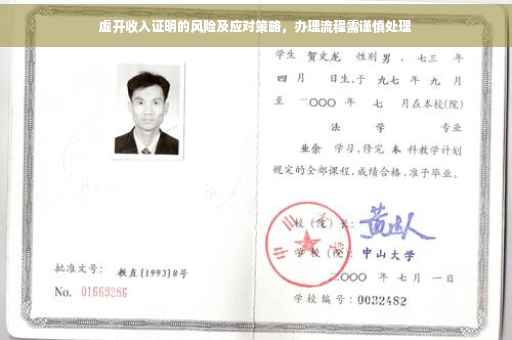 虚开收入证明的风险及应对策略，办理流程需谨慎处理
学生 贺文龙 性别 男，七三 年
四 月 日生，于 九七 年 九 月
至 二〇〇〇 年 七 月在本校(院)
法 学 专业
业余 学习，修完 本 科教学计划
规定的全部课程，成绩合格，准予毕业。
校（院）长：
学校（院）：中山大学
二〇〇〇 年 七 月 一 日
学校编号：0032482
批准文号：教直[1993]8号
No. 01669286